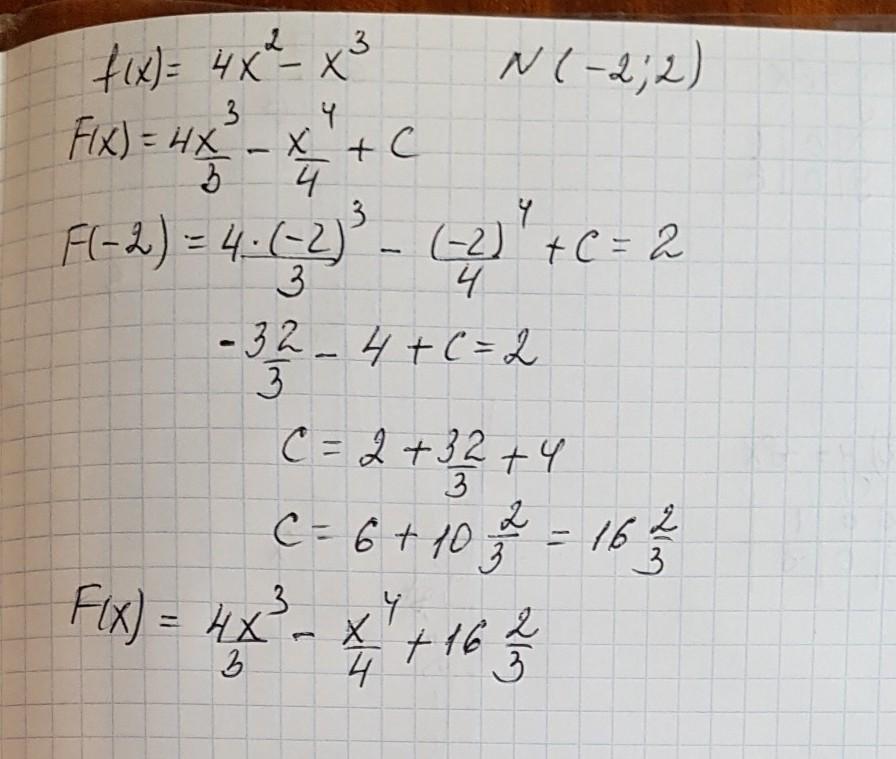 f(x) = 4x² - x³ N(-2; 2)
F(x) = 4x³/3 - x⁴/4 + C
F(-2) = 4·(-2)³/3 - (-2)⁴/4 + C = 2
-32/3 - 4 + C = 2
C = 2 + 32/3 + 4
C = 6 + 10 2/3 = 16 2/3
F(x) = 4x³/3 - x⁴/4 + 16 2/3